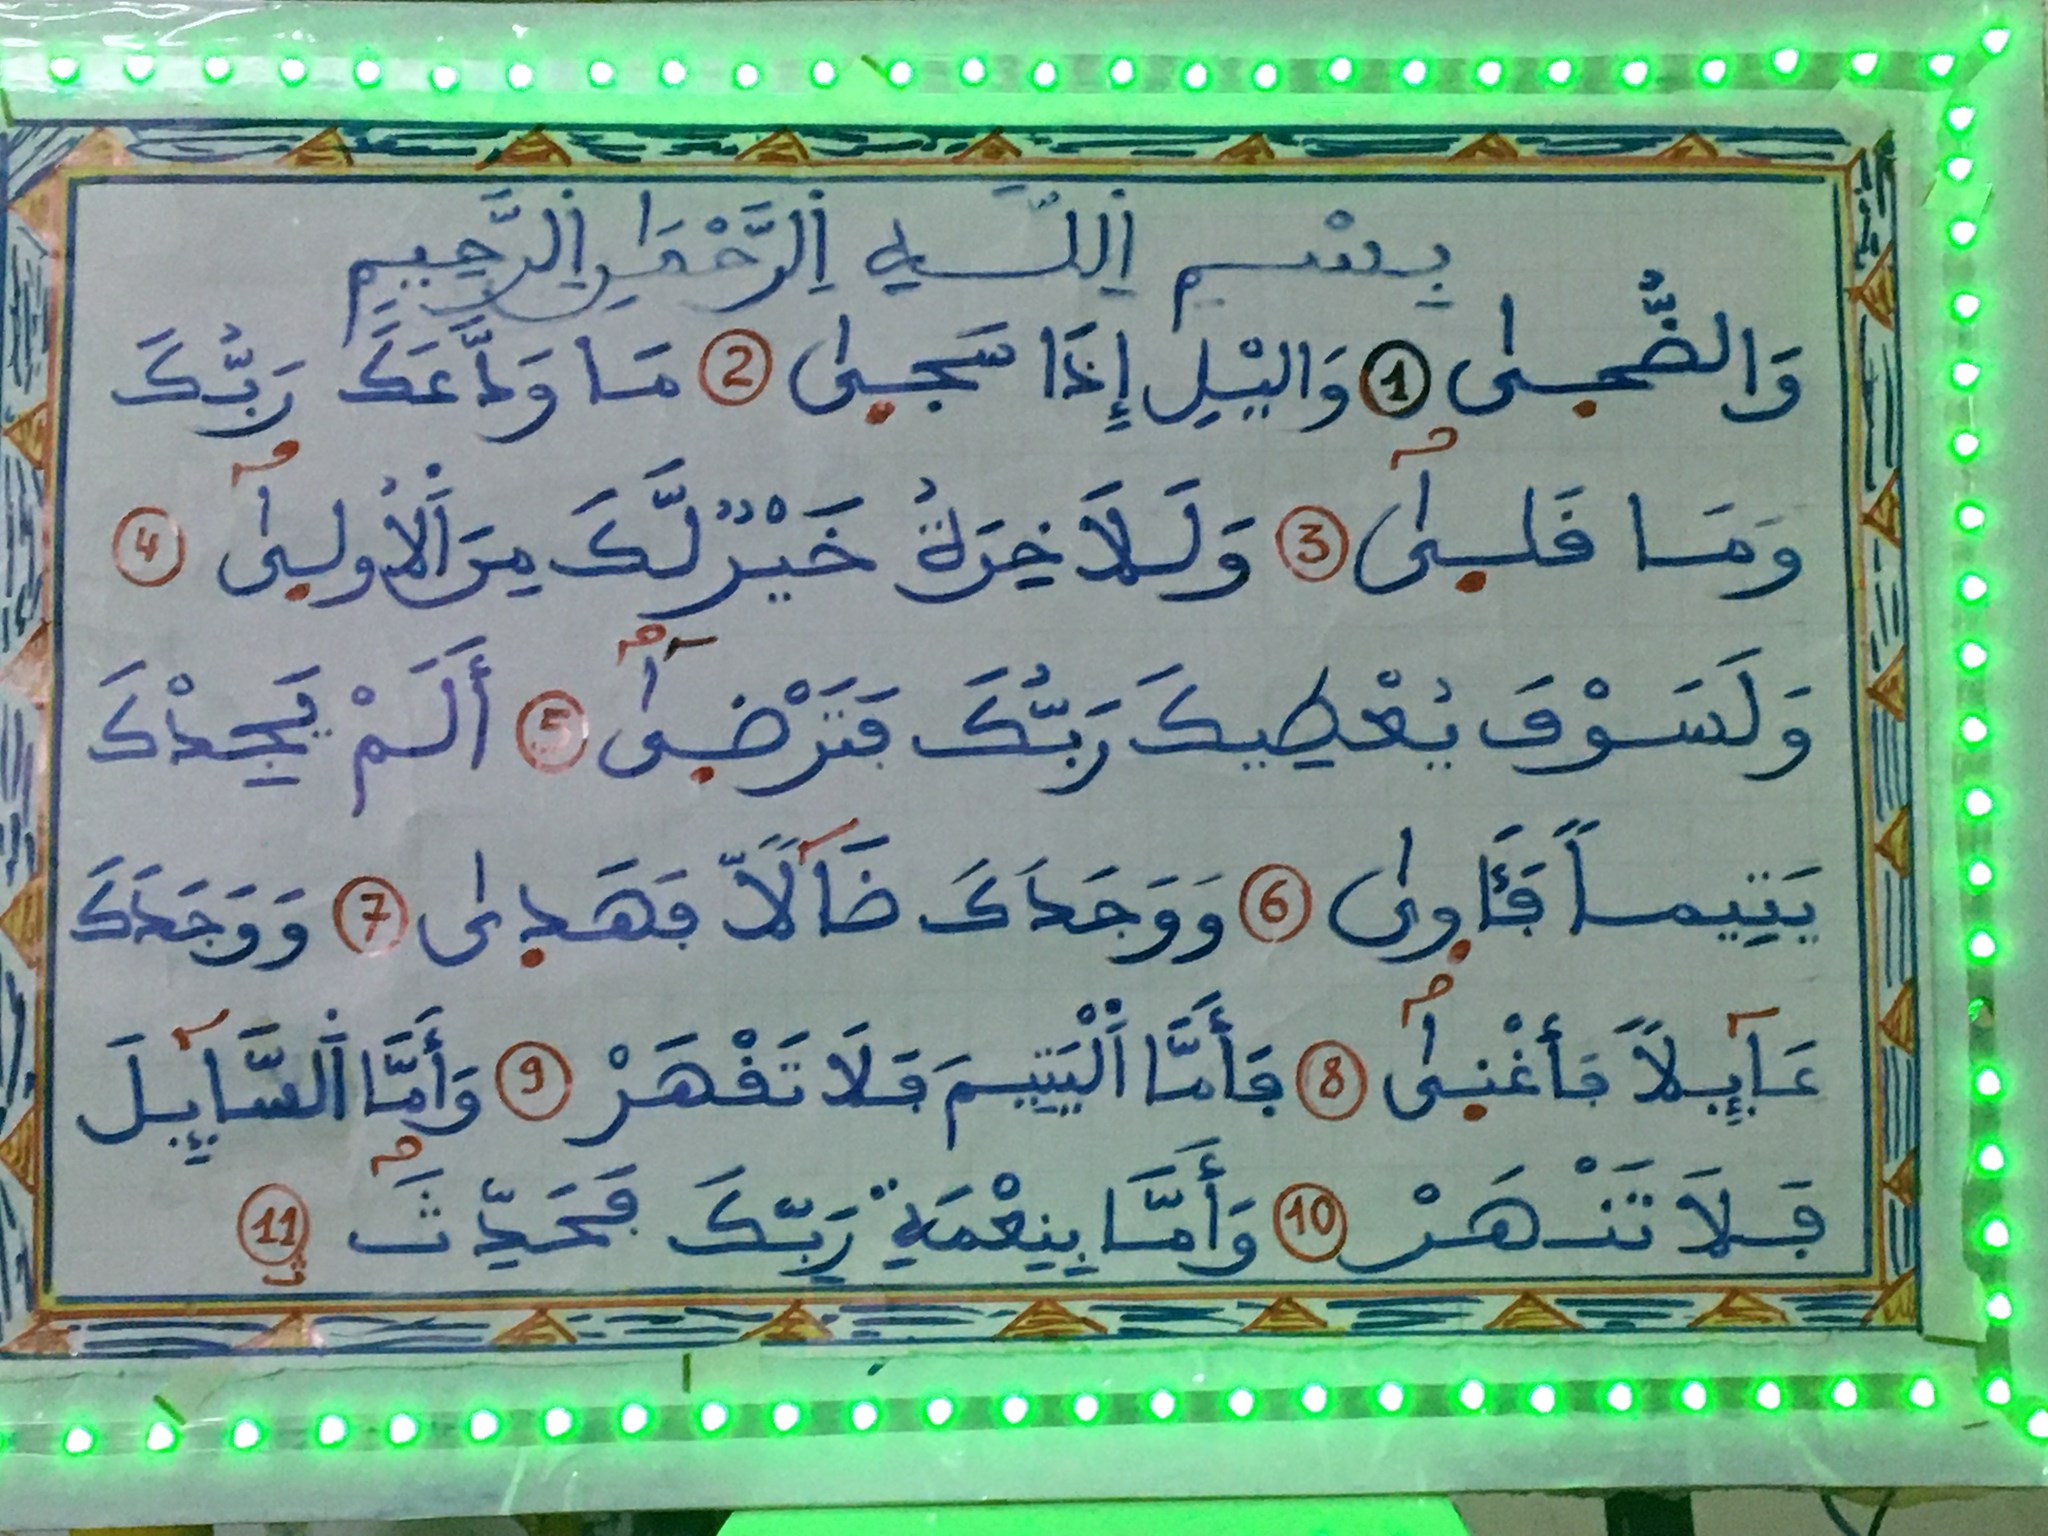 بِسْمِ اِ۬للَّهِ اِ۬لرَّحْمَٰنِ اِ۬لرَّحِيمِ
وَالضُّحىٰ 1 وَاليْلِ إِذَا سَجىٰ 2 مَا وَدَّعَكَ رَبُّكَ
وَمَا قَلىٰ 3 وَلَلَاخِرَةُ خَيْرٌ لَّكَ مِنَ اَ۬لُاولىٰ 4
وَلَسَوْفَ يُعْطِيكَ رَبُّكَ فَتَرْضىٰ 5 أَلَمْ يَجِدْكَ
يَتِيماً فَـَٔاوىٰ 6 وَوَجَدَكَ ضَآلّاً فَهَدىٰ 7 وَوَجَدَكَ
عَآئِلاً فَأَغْنىٰ 8 فَأَمَّا اَ۬لْيَتِيمَ فَلَا تَقْهَرْ 9 وَأَمَّا اَ۬لسَّآئِلَ
فَلَا تَنْهَرْ 10 وَأَمَّا بِنِعْمَةِ رَبِّكَ فَحَدِّثْ 11